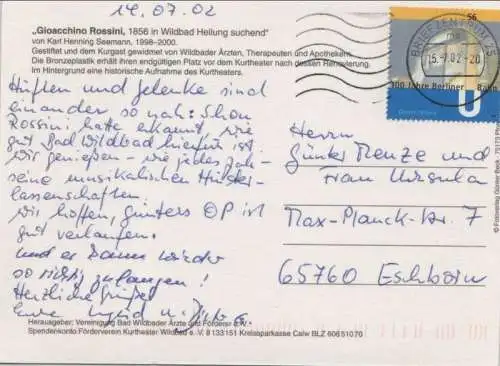 14.07.02
„Gioacchino Rossini, 1856 in Wildbad Heilung suchend“
von Karl Henning Seemann, 1998-2000.
Gestiftet und dem Kurgast gewidmet von Wildbader Ärzten, Therapeuten und Apothekern.
Die Bronzeplastik erhält ihren endgültigen Platz vor dem Kurtheater nach dessen Renovierung.
Im Hintergrund eine historische Aufnahme des Kurtheaters.
Hüften und Gelenke sind
einander so nah: Schon
Rossini hatte erkannt, wie
gut Bad Wildbad hierfür ist
wir genießen – wie jedes Jahr –
seine musikalischen Hinter-
lassenschaften.
Wir hoffen, Günters OP ist
gut verlaufen.
und er kann wieder
so richtig zulangen!
Herzliche Grüße
Eure
Herausgeber: Vereinigung Bad Wildbader Ärzte und Förderer e.V.
Spendenkonto: Förderverein Kurtheater Wildbad e.V. 8133151 Kreissparkasse Calw BLZ 60651070
56
BRIEFZENTRUM
15.-7.02-20
100 Jahre Berliner Bahn
U
Herrn
Günter Menze und
Frau Ursula
Max-Planck-Str. 7
65760 Eschborn